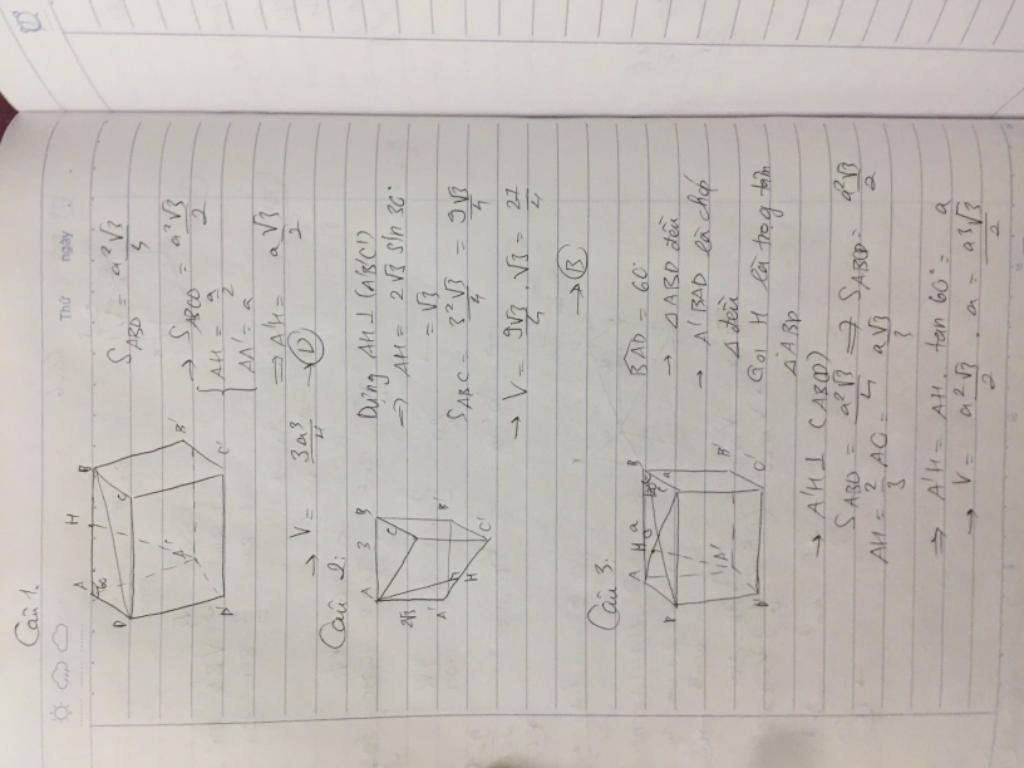 Thứ ngày
Câu 1.
A H B
60°
D C
A' B'
D' C'
S_ABD = a²√3/4
→ S_ABCD = a²√3/2
{ AH = a/2
AA' = a
⇒ A'H = a√3/2
→ V = 3a³/4 → D
Câu 2:
A 3 B
C
2√3
A' B'
H C'
Dựng AH ⊥ (A'B'C')
⇒ AH = 2√3 sin 30°
= √3
S_ABC = 3²√3/4 = 9√3/4
→ V = 9√3/4 . √3 = 27/4
→ B
Câu 3.
A H a B
D C
A' B'
D' C'
BAD = 60°
→ ΔABD đều
→ A'BAD là chóp
Δ đều
Gọi H là trọng tâm
ΔABD
→ A'H ⊥ (ABCD)
S_ABD = a²√3/4 ⇒ S_ABCD = a²√3/2
AH = 2/3 AO = a√3/3
⇒ A'H = AH . tan 60° = a
→ V = a²√3/2 . a = a³√3/2